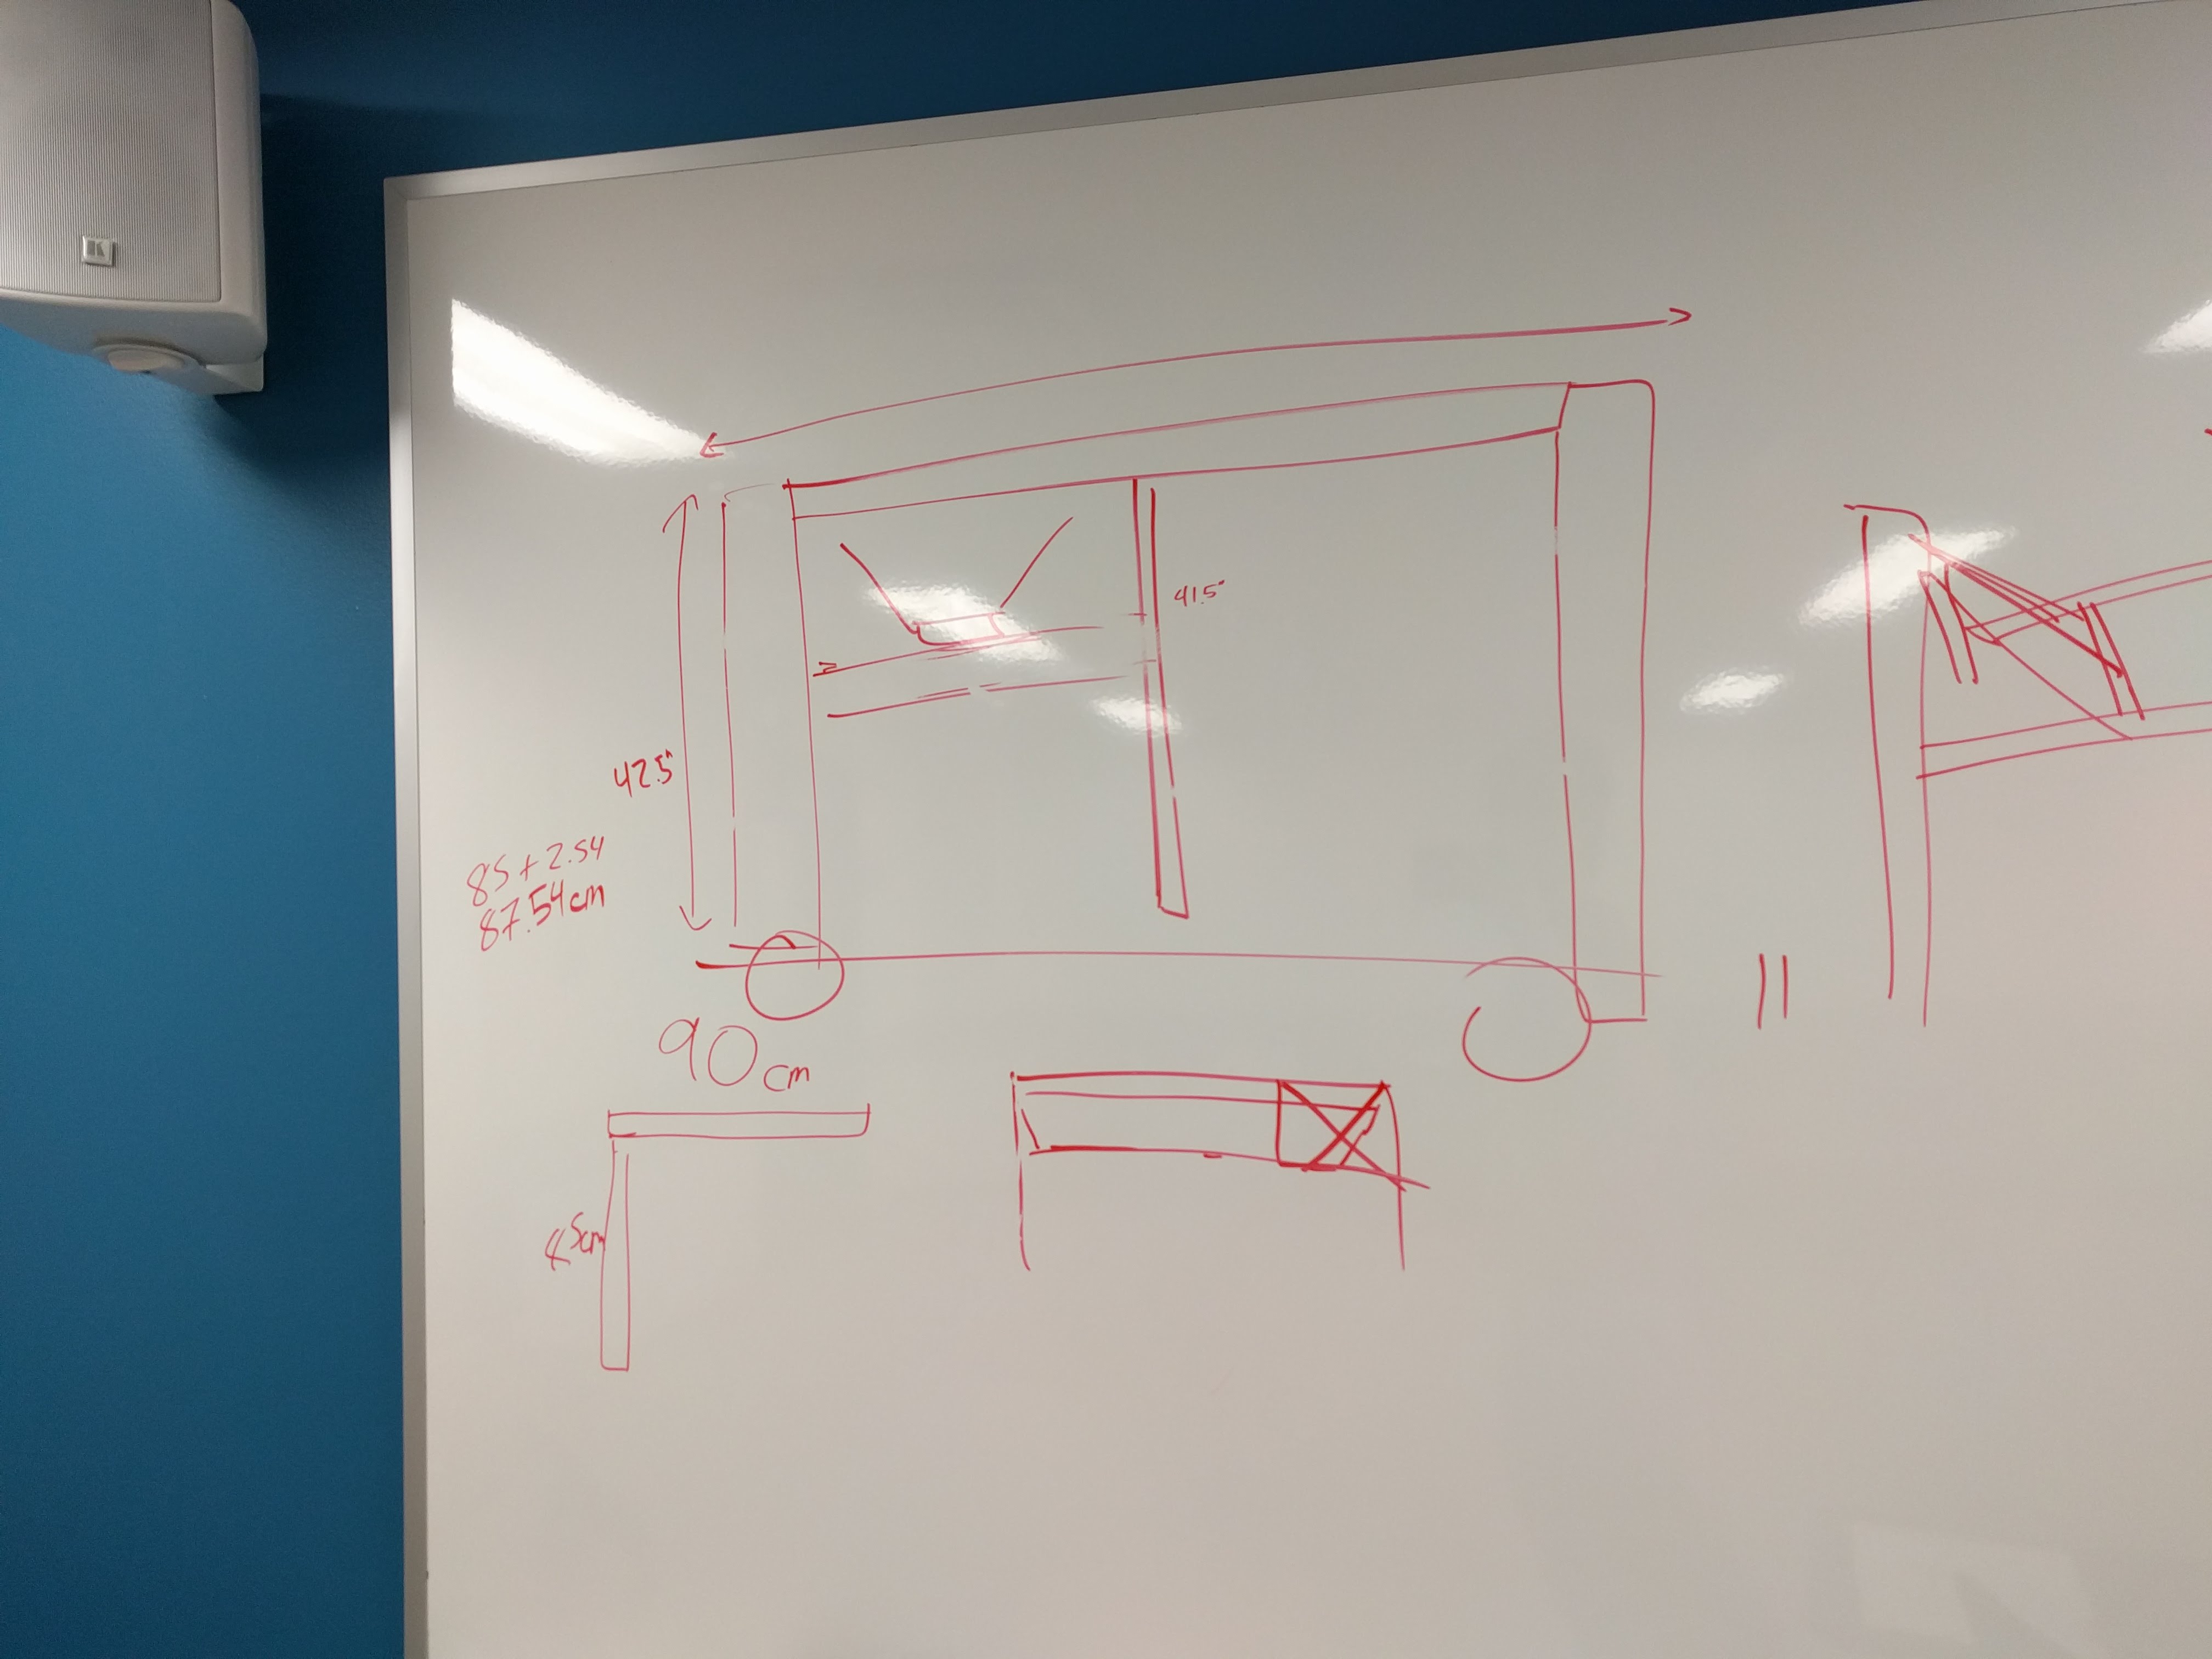 41.5"
42.5"
85 + 2.54
87.54cm
90cm
85cm